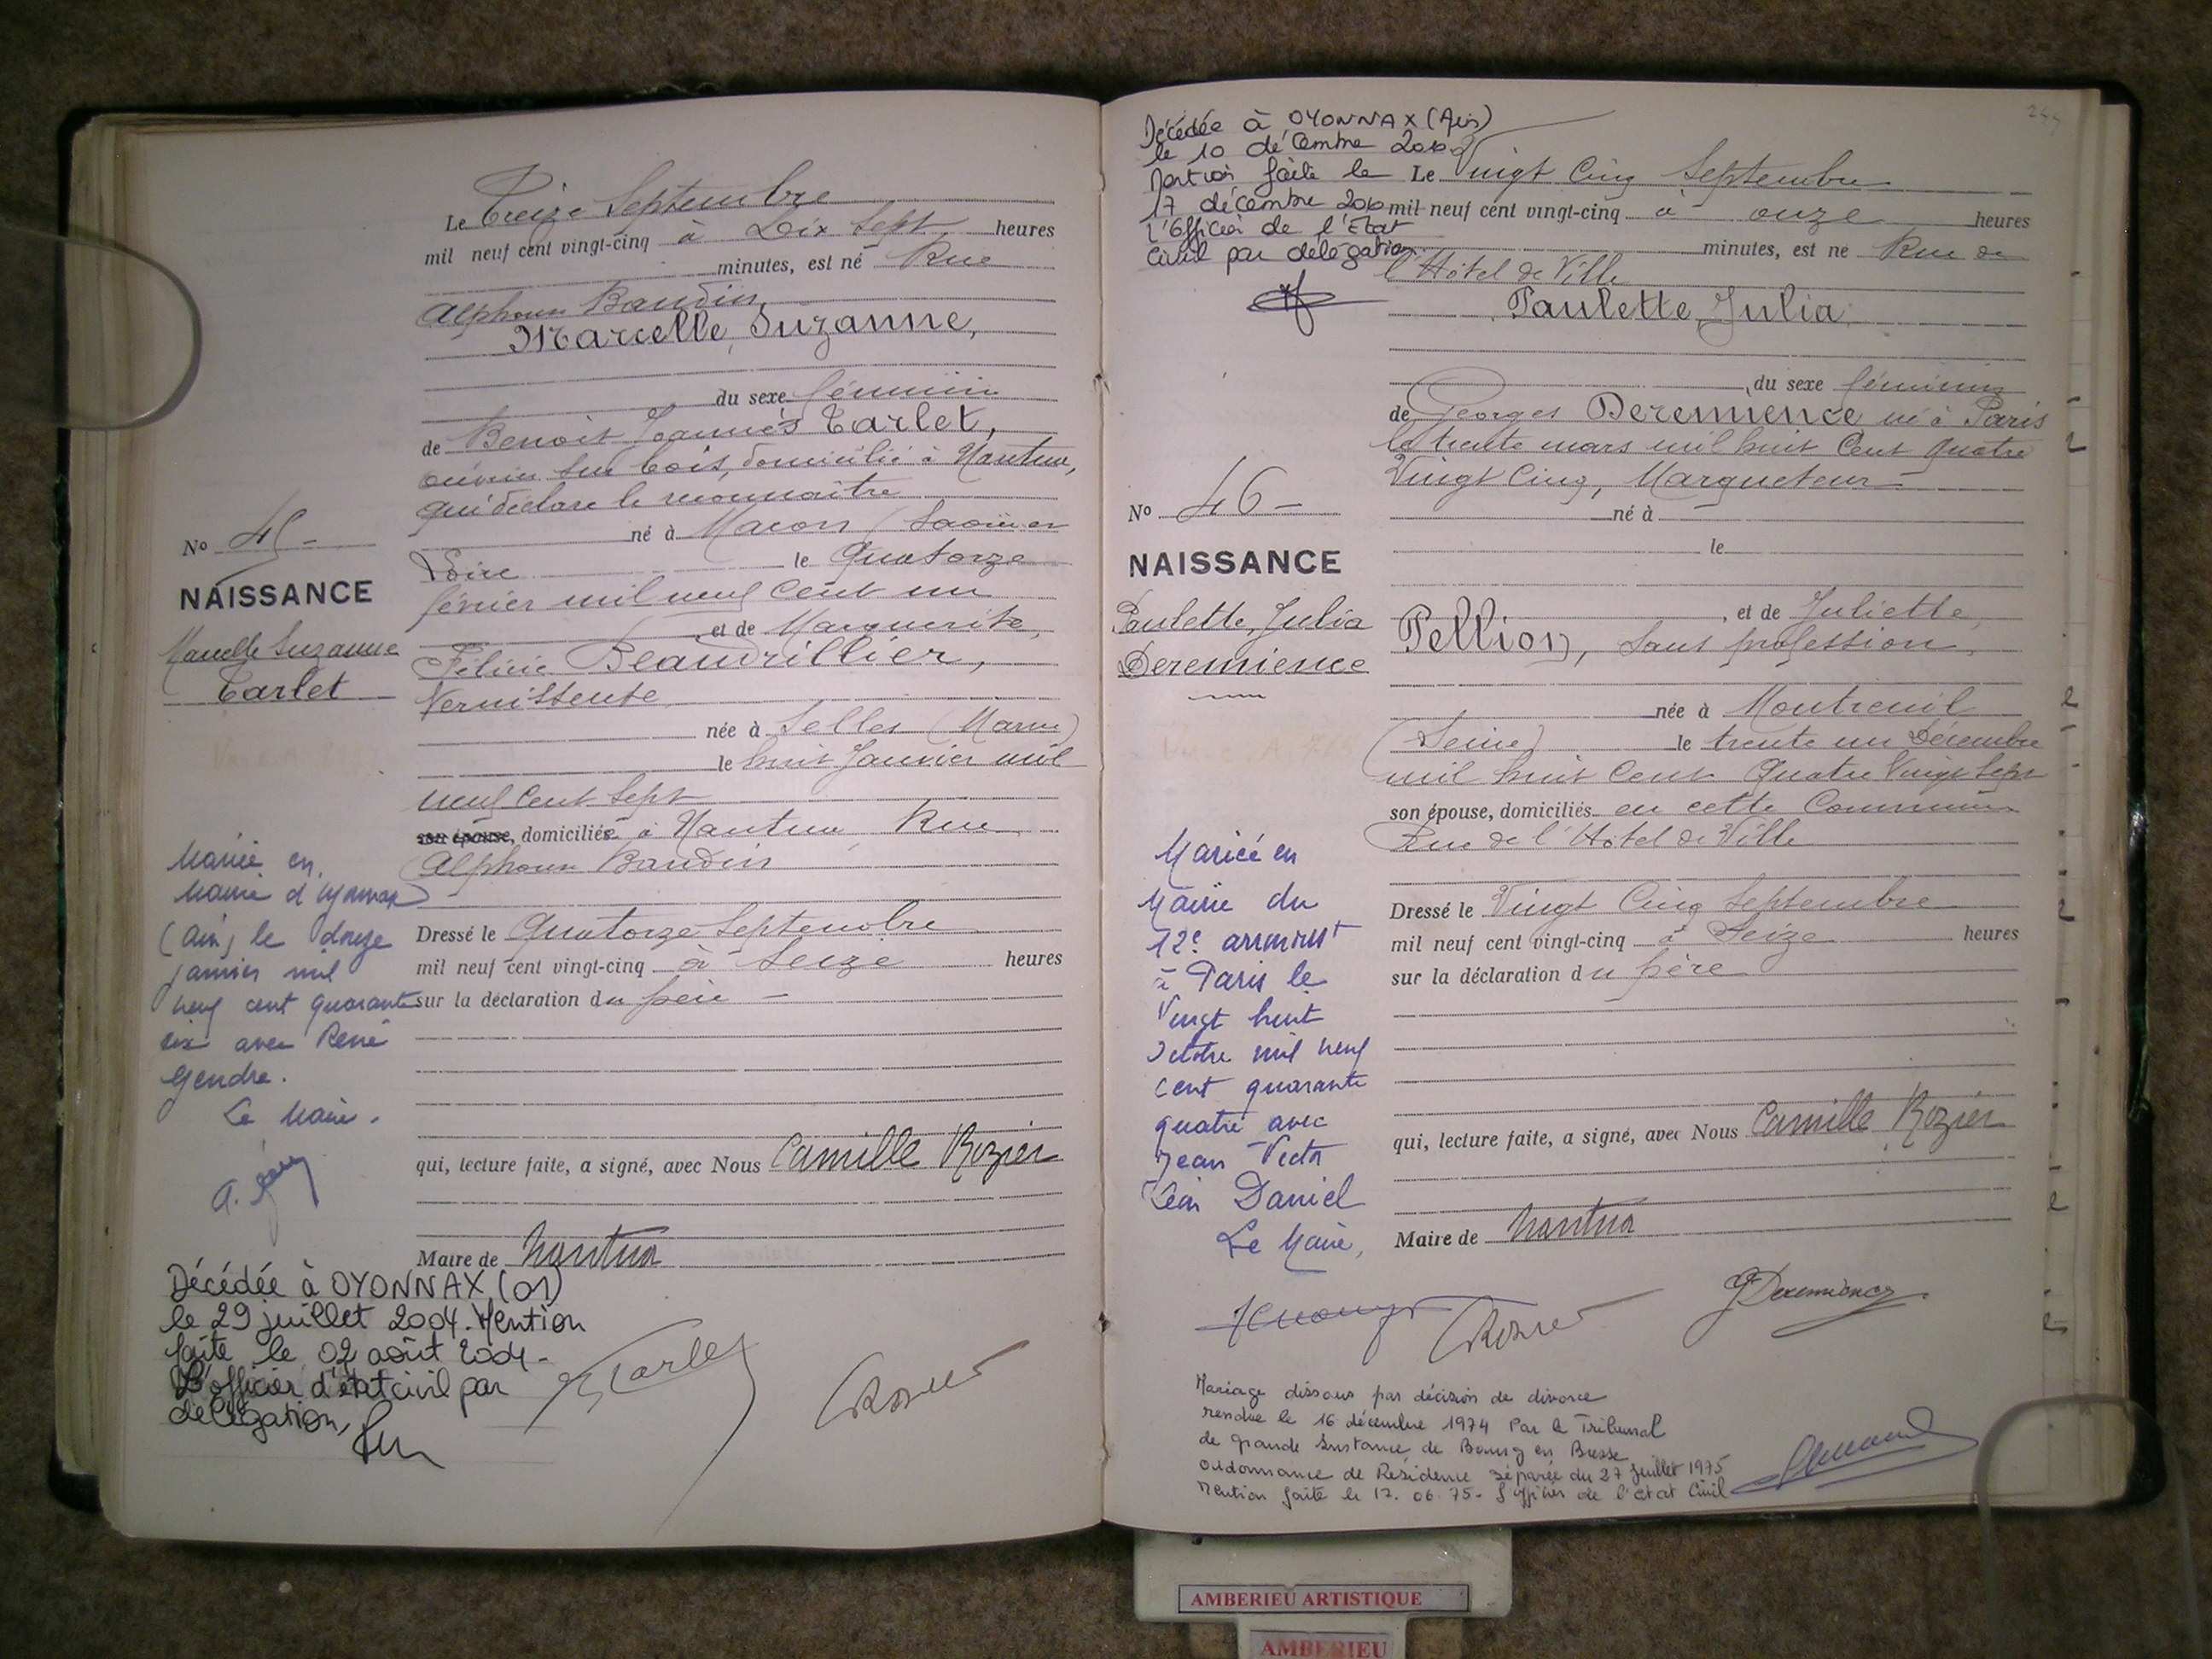 Le Treize Septembre
mil neuf cent vingt-cinq à Dix Sept heures
minutes, est né Rue
Alphonse Baudin
Marcelle, Suzanne,
du sexe féminin
de Benoit Joannès Tarlet,
ouvrier sur bois, domicilié à Nantua,
qui déclare le reconnaître
né à Macon (Saône et
Loire le Quatorze
février mil neuf cent un
et de Marguerite,
Félicie Beaudrillier,
Vernisseuse
née à Selles (Marne)
le huit Janvier mil
neuf cent sept
son épouse, domiciliée à Nantua, Rue
Alphonse Baudin
Dressé le Quatorze Septembre
mil neuf cent vingt-cinq à Seize heures
sur la déclaration du père
qui, lecture faite, a signé, avec Nous Camille Rozier
Maire de Nantua
No 45
NAISSANCE
Marcelle Suzanne
Tarlet
Mariée en
Mairie d'Oyonnax
(Ain) le douze
janvier mil
neuf cent quarante
six avec René
Gendre.
Le Maire.
Décédée à OYONNAX (01)
le 29 juillet 2004. Mention
faite le 02 août 2004 -
L'officier d'état civil par
délégation,
Tarlet
Rozier
244
Décédée à OYONNAX (Ain)
le 10 décembre
Mention faite le
17 décembre
L'Officier de l'Etat
Civil par délégation
Le Vingt Cinq Septembre
mil neuf cent vingt-cinq à onze heures
minutes, est né Rue de
l'Hôtel de Ville
Paulette, Julia,
du sexe féminin
de Georges Deremience né à Paris
le trente mars mil huit Cent Quatre
Vingt Cinq, Marqueteur
né à
le
et de Juliette,
Pellion, Sans profession,
née à Montreuil
(Seine) le trente un Décembre
mil huit Cent Quatre Vingt Sept
son épouse, domiciliés en cette Commune
Rue de l'Hôtel de Ville
Dressé le Vingt Cinq Septembre
mil neuf cent vingt-cinq à Seize heures
sur la déclaration du père
qui, lecture faite, a signé, avec Nous Camille Rozier
Maire de Nantua
No 46
NAISSANCE
Paulette, Julia
Deremience
Mariée en
Mairie du
12e arrondist
à Paris le
Vingt huit
Octobre mil neuf
cent quarante
quatre avec
Jean Victor
Léon Daniel
Le Maire,
Rozier
G Deremience
Mariage dissous par décision de divorce
rendue le 16 décembre 1974 Par le Tribunal
de grande Instance de Bourg en Bresse
Ordonnance de Résidence séparée du 27 Juillet 1975
Mention faite le 17. 06. 75 - L'officier de l'état Civil
AMBERIEU ARTISTIQUE
AMBERIEU